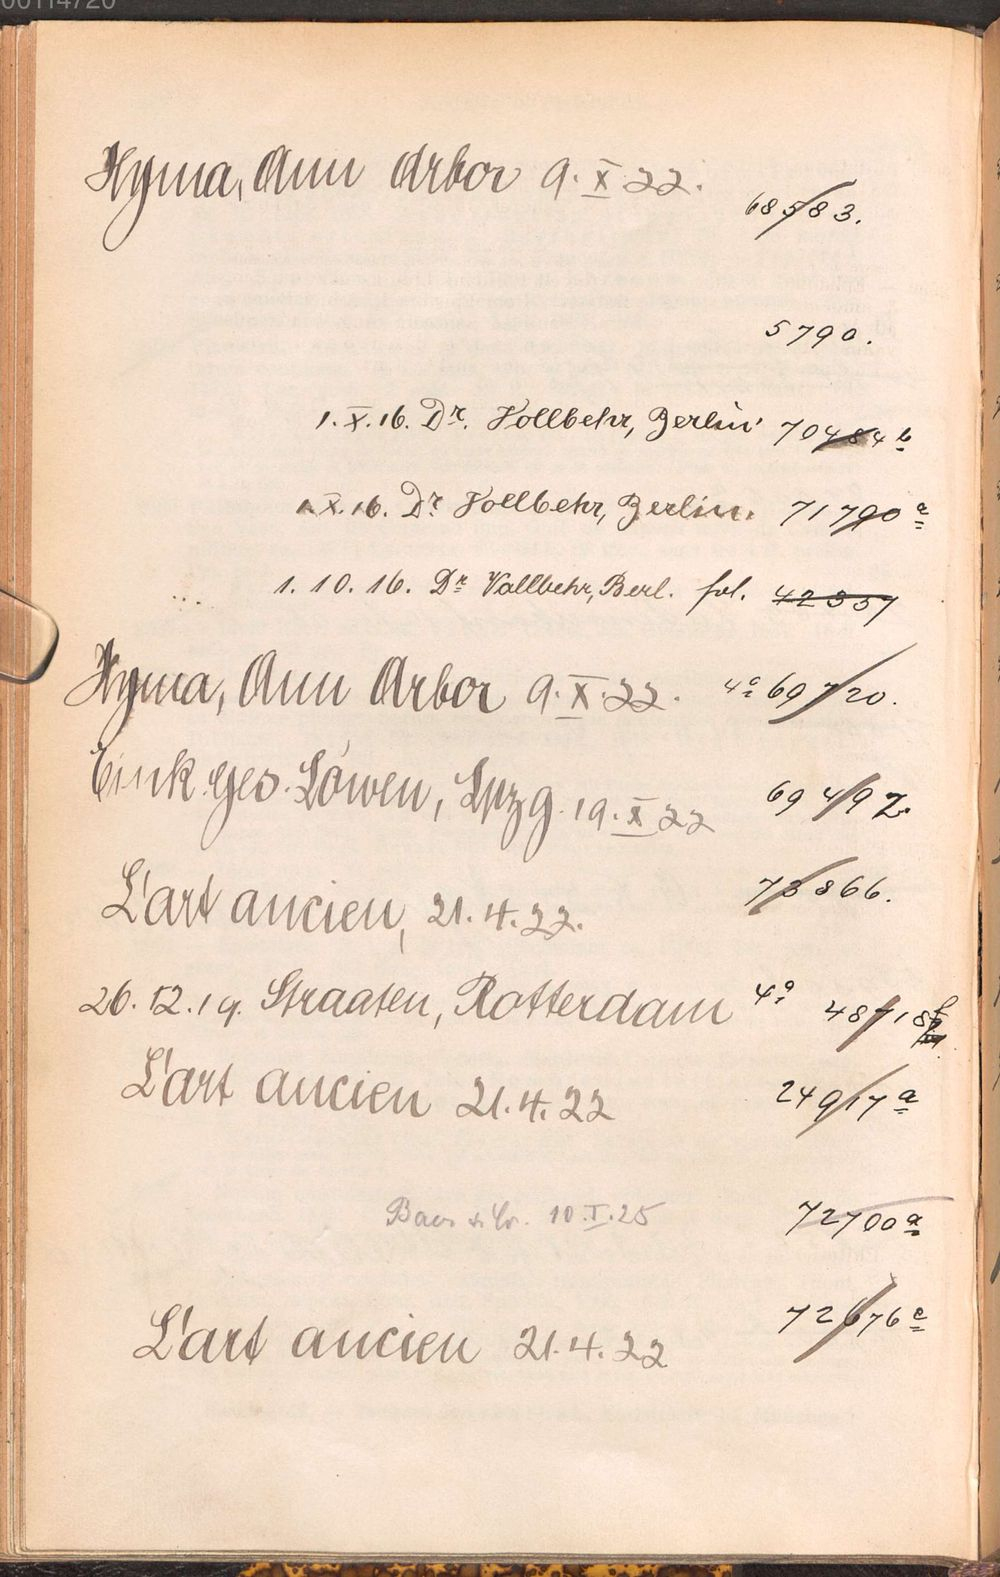 00114720
Hyma, Ann Arbor 9. X 22. 68583.
5790.
1. X. 16. Dr. Vollbehr, Berlin 70484 b
1. X. 16. Dr Vollbehr, Berlin. 71790 a
1. 10. 16. Dr Vollbehr, Berl. fol. 42357
Hyma, Ann Arbor 9. X. 22. 4° 69720.
Eink. ges. Löwen, Lpzg. 19. X 22 69492.
L'art ancien, 21. 4. 22. 73866.
26. 12. 19. Straaten, Rotterdam 4° 48718 f
L'art ancien 21. 4. 22 24917 a
Baer & Co. 10. I. 25 72700 a
L'art ancien 21. 4. 22 72676 e